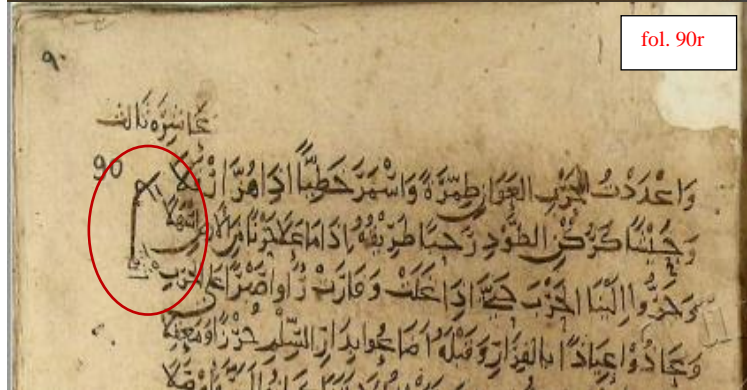 fol. 90r
٩٠
عاشرة ثالث
90
واعددت للحرب العوان طمرة واسمر خطيا اذا هز
وجيشا كركن الطود رحبا طريقه اذا ما علا حزنا من الارض
وجروا الينا الحرب حتى اذا غلت وفارت راوا صبرا على الحرب
وعادوا عياذا بالفرار وقبله اضاعوا بدار السلم حرزا ومعقلا